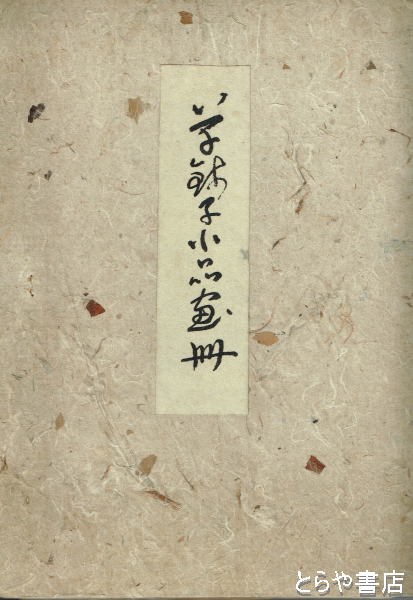 草鉢子小品画冊
とらや書店